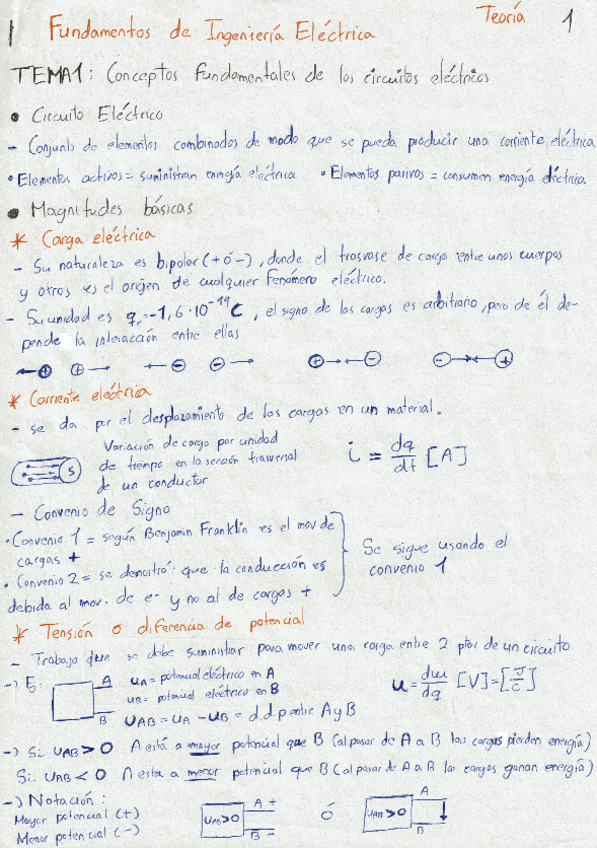 Teoría 1
1 Fundamentos de Ingeniería Eléctrica
TEMA 1: Conceptos fundamentales de los circuitos eléctricos
• Circuito Eléctrico
- Conjunto de elementos combinados de modo que se pueda producir una corriente eléctrica
• Elementos activos = suministran energía eléctrica • Elementos pasivos = consumen energía eléctrica.
• Magnitudes básicas
* Carga eléctrica
- Su naturaleza es bipolar (+ ó -), donde el trasvase de carga entre unos cuerpos
y otros es el origen de cualquier Fenómeno eléctrico.
- Su unidad es q = -1,6·10⁻¹⁹ C, el signo de las cargas es arbitrario, pero de él de-
pende la interacción entre ellas
⊕ ⊕ ⊖ ⊖ ⊕ ⊖ ⊖ ⊕
* Corriente eléctrica
- se da por el desplazamiento de las cargas en un material.
S
Variación de carga por unidad
de tiempo en la sección trasversal
de un conductor
i = dq/dt [A]
- Convenio de Signo
• Convenio 1 = según Benjamin Franklin es el mov de
cargas +
• Convenio 2 = se demostró que la conducción es
debida al mov. de e- y no al de cargas +
Se sigue usando el
convenio 1
* Tensión o diferencia de potencial
- Trabajo que se debe suministrar para mover una carga entre 2 ptos de un circuito
-) Ej: A B
uA = potencial eléctrico en A
uB = potencial eléctrico en B
UAB = UA - UB = d.d.p entre A y B
u = dw/dq [V] = [J/C]
-) Si UAB > 0 A está a mayor potencial que B (al pasar de A a B las cargas pierden energía)
Si UAB < 0 A esta a menor potencial que B (al pasar de A a B las cargas ganan energía)
-) Notación:
Mayor potencial (+)
Menor potencial (-)
UAB>0 A + B - ó UAB>0 A B